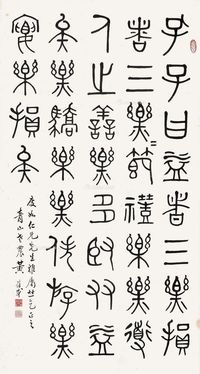 孔子曰益者三樂損
者三樂〻節禮樂樂道
人之善樂多賢友益
矣樂驕樂樂佚遊樂
宴樂損矣
仁兄先生雅屬並乞正之
青山老農黃葆戉